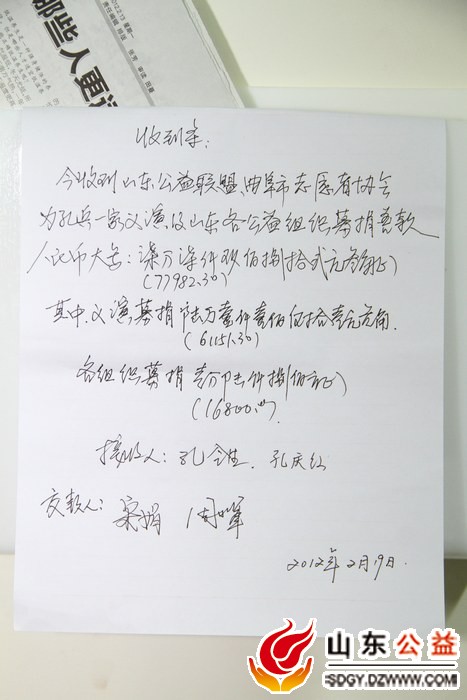 那些人更
收到条:
今收到山东公益联盟、曲阜市志愿者协会
为孔兵一家义演及山东各公益组织募捐善款
人民币大写:柒万柒仟玖佰捌拾弍元叁角正)
(77982.30)
其中、义演募捐陆万壹仟壹佰伍拾壹元叁角.
(61151.30)
各组织募捐壹万陆仟捌佰元正)
(16800.00)
接收人:孔令生、孔庆红
交款人:梁娟
2012年2月19日.
山东公益
SDGY.DZWWW.COM